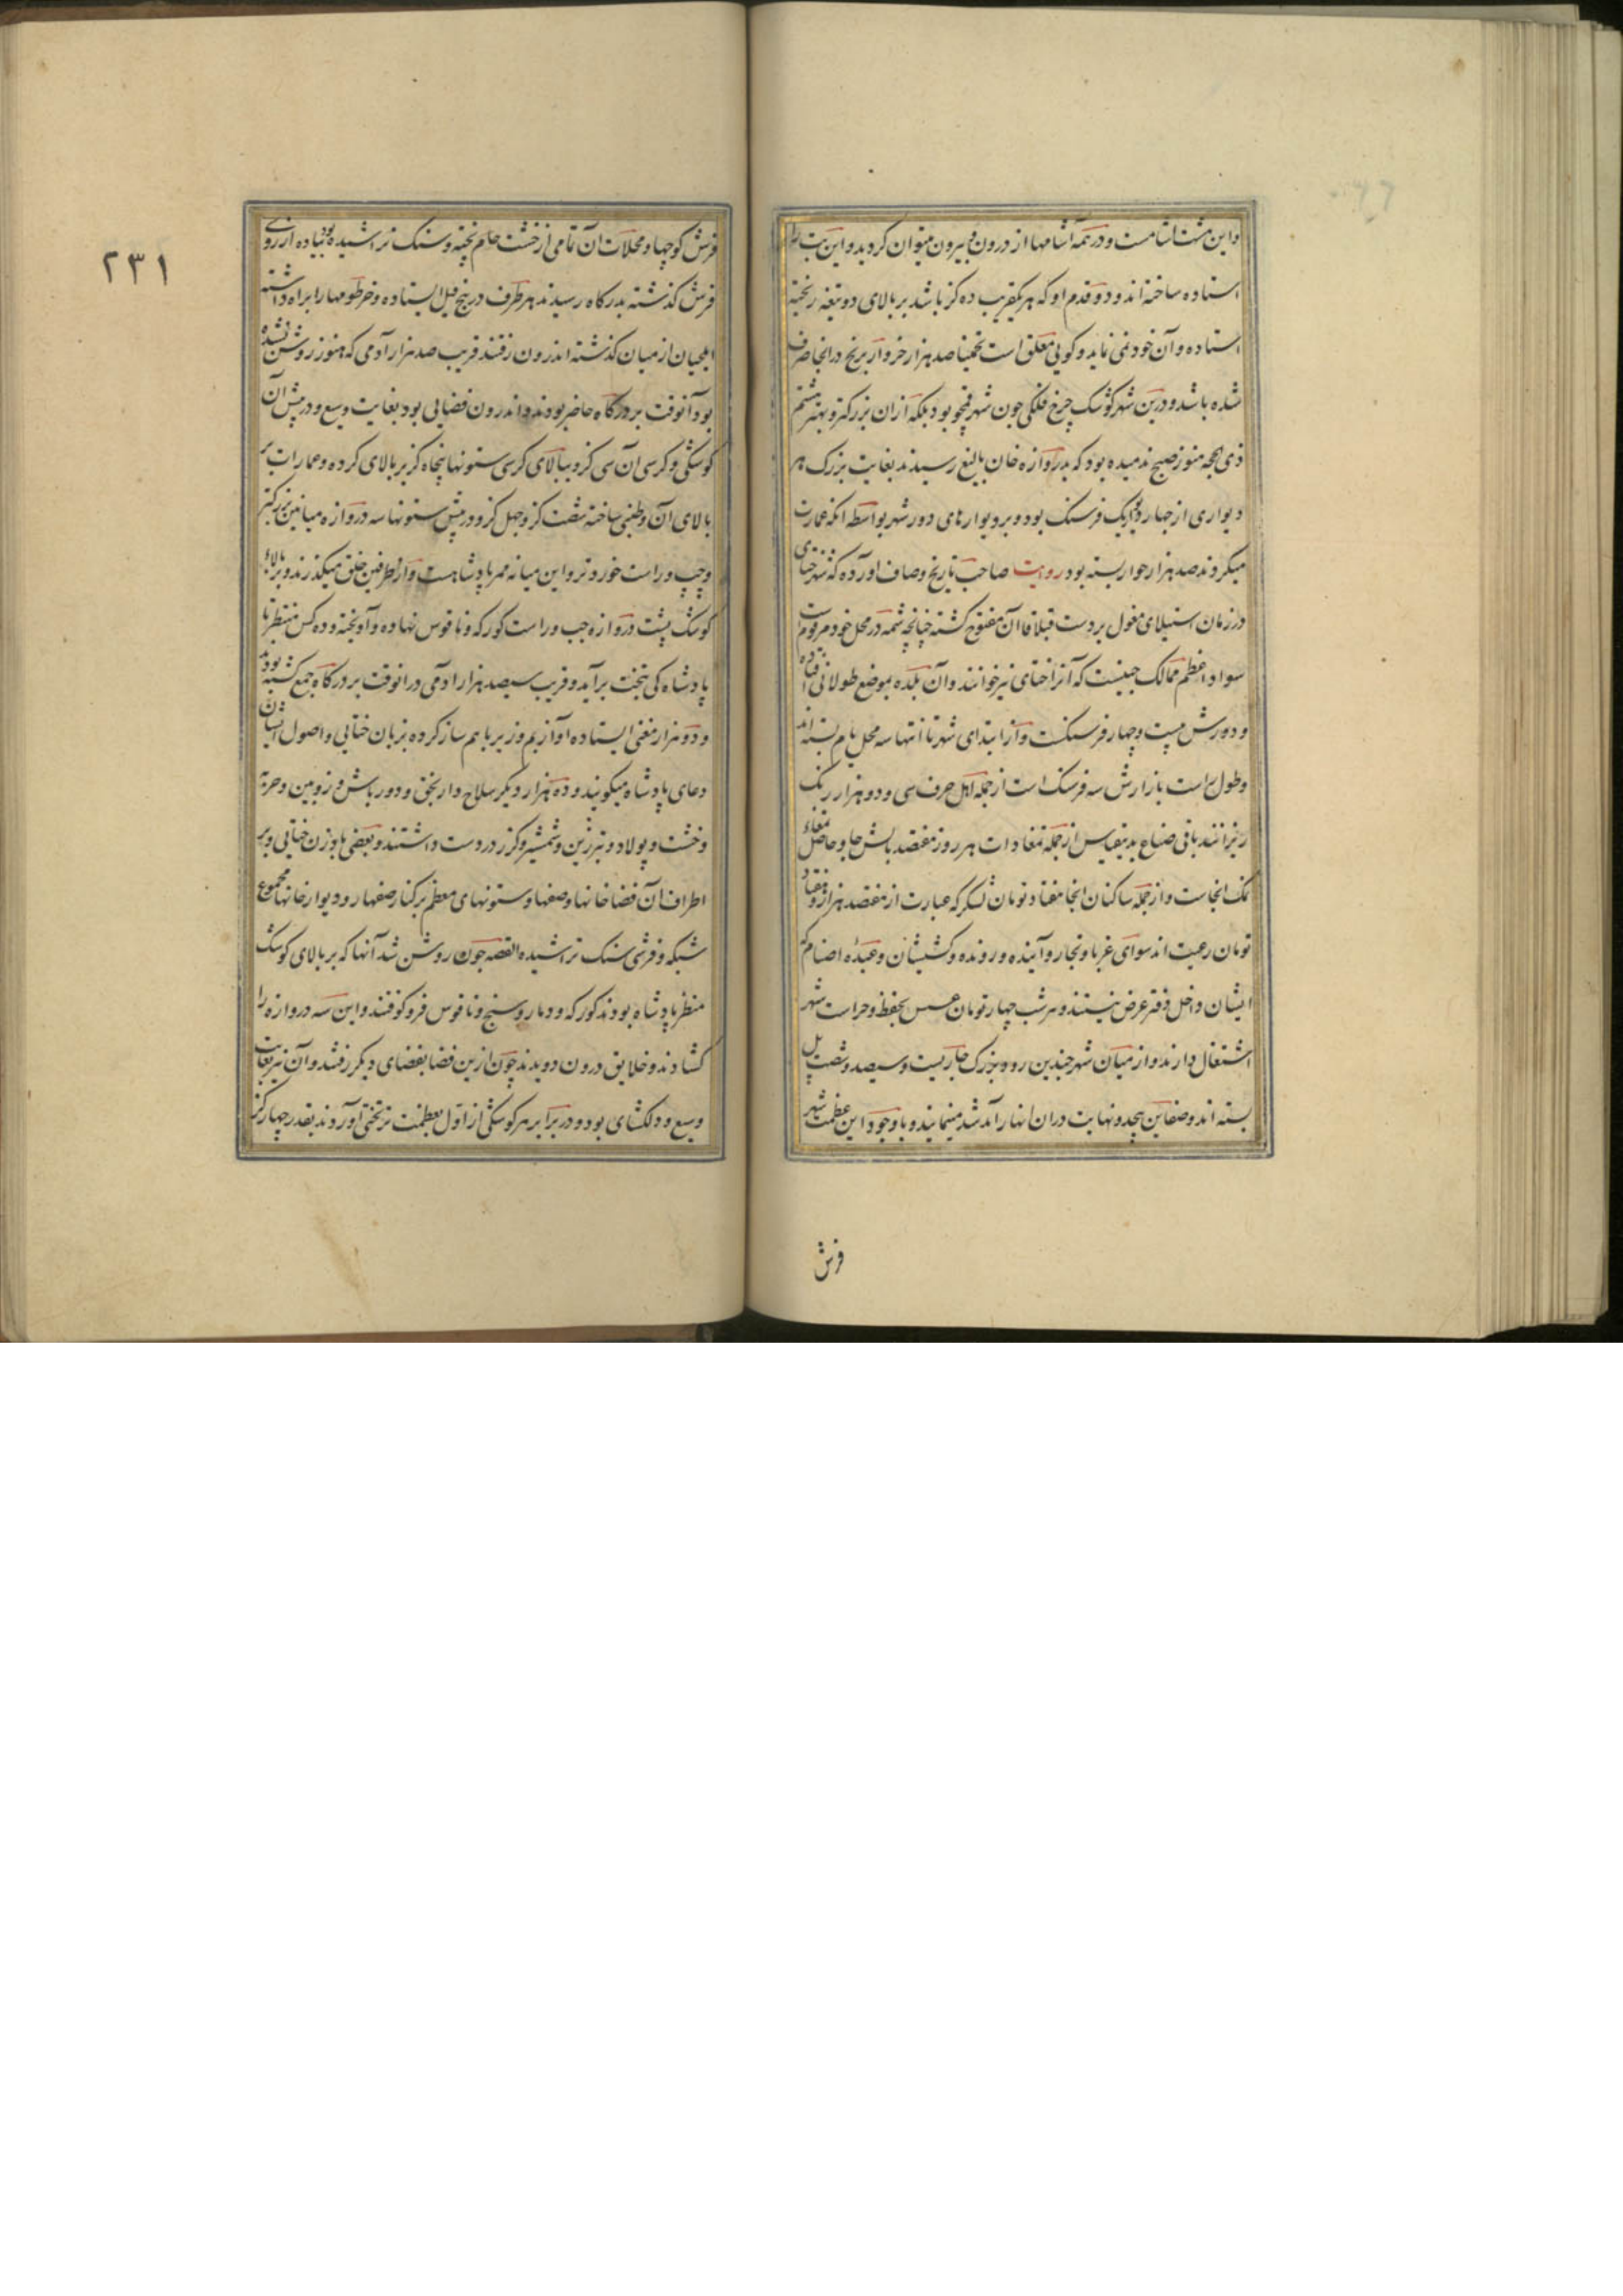 و این هشت اشامست و در همه آشامها از درون و بیرون میتوان کردید و این بت را
استاده ساخته اند و دو قدم او که هر یکقریب ده کز باشد بر بالای دو تیغه ریخته
استاده و آن خود نمی نماید و کویی معلق است تخمینا صد هزار خروار برنج در انجا صرف
شده باشد و درین شهر کوشک چرخ فلکی چون شهر قمجو بود بلکه ازان بزرکتر و بهتر هشتم
ذی حجه هنوز صبح ندمیده بود که بدروازه خان بالیغ رسیدند بغایت بزرک هر
دیواری از چهار دیوار یک فرسنک بود و بر دیوارهای دور شهر بواسطه انکه عمارت
میکردند صد هزار خوار بسته بود روایت صاحب تاریخ وصاف اورده که شهر ختای
در زمان استیلای مغول بر دست قبلا قاآن مفتوح کشته چنانچه شمه در محل خود مرقوم است
سواد اعظم ممالک چینست که آنرا ختای نیز خوانند و آن بلده بموضع طولانی افتاده
و دورش بیست و چهار فرسنکست و از ابتدای شهر تا انتها سه محل یام بسته اند
و طول راست بازارش سه فرسنک است از جمله اهل حرف سی و دو هزار رنک
ریزانند باقی صناع بدینقیاس از جمله تمغادات هر روز هفتصد بالش چاو حاصل تمغاء
نمک انجاست و از جمله ساکنان انجا هفتاد تومان لشکر که عبارت از هفتصد هزار و هفتاد
تومان رعیت اند سوای غربا و تجار و آینده و رونده و کشیشان و عبدهٔ اصنام که
ایشان داخل دفتر عرض نیستند و هر شب چهار تومان عسس بحفظ و حراست شهر
اشتغال دارند و از میان شهر چندین رود بزرک جاریست و سیصد و شصت پل
بسته اند و صفاین بیحد و نهایت دران انهار آمد شد مینمایند و با وجود این عظمت شهر
فرش
٢٣١
فرش کوچها و محلات ان تمامی از خشت خام پخته و سنک تراشیده بود پیاده از روی
فرش کذشته بدرکاه رسیدند بهر طرف در پنج فیل ایستاده و خرطومها را براه داشته
ایلچیان از میان کذشته اندرون رفتند قریب صد هزار آدمی که هنوز روشن نشده
بود آنوقت بر درکاه حاضر بودند و اندرون فضایی بود بغایت وسیع و در پیش آن
کوشکی و کرسی آن سی کز و ببالای کرسی ستونها پنجاه کز بر بالای کرده و عمارات بر
بالای آن و طنبی ساخته شصت کز و چهل کز و در پیش ستونها سه دروازه میانین بزرکتر
و چپ و راست خورد تر و این میانه ممر پادشاهست و از طرفین خلق میکذرند و بر بالاء
کوشک پشت دروازه چپ و راست کورکه و ناقوس نهاده و آویخته و دو کس منتظر تا
پادشاه کی بتخت برآید و قریب سیصد هزار آدمی درانوقت بر درکاه جمع کشته بودند
و دو هزار مغنی ایستاده آواز بم و زیر با هم ساز کرده بزبان ختایی و اصول ایشان
دعای پادشاه میکویند و ده هزار دیکر سلاح دار بخق و دور باش و زوبین و حربه
و خشت و پولاد و تبرزین و شمشیر و کرز در دست داشتند و بعضی بادزن ختایی و بر
اطراف آن فضا خانها و صفها و ستونهای معظم بر کنار صفها و دیوار خانها مجموع
شبکه و فرش سنک تراشیده القصه چون روشن شد آنها که بر بالای کوشک
منتظر پادشاه بودند کورکه و دمار و سنج و ناقوس فرو کوفتند و این سه دروازه را
کشادند و خلایق درون دویدند چون ازین فضا بفضای دیکر رفتند و آن نیز بغایت
وسیع و دلکشای بود و در برابر هر کوشکی از اول بعظمت تر تختی آوردند بقدر چهار کز